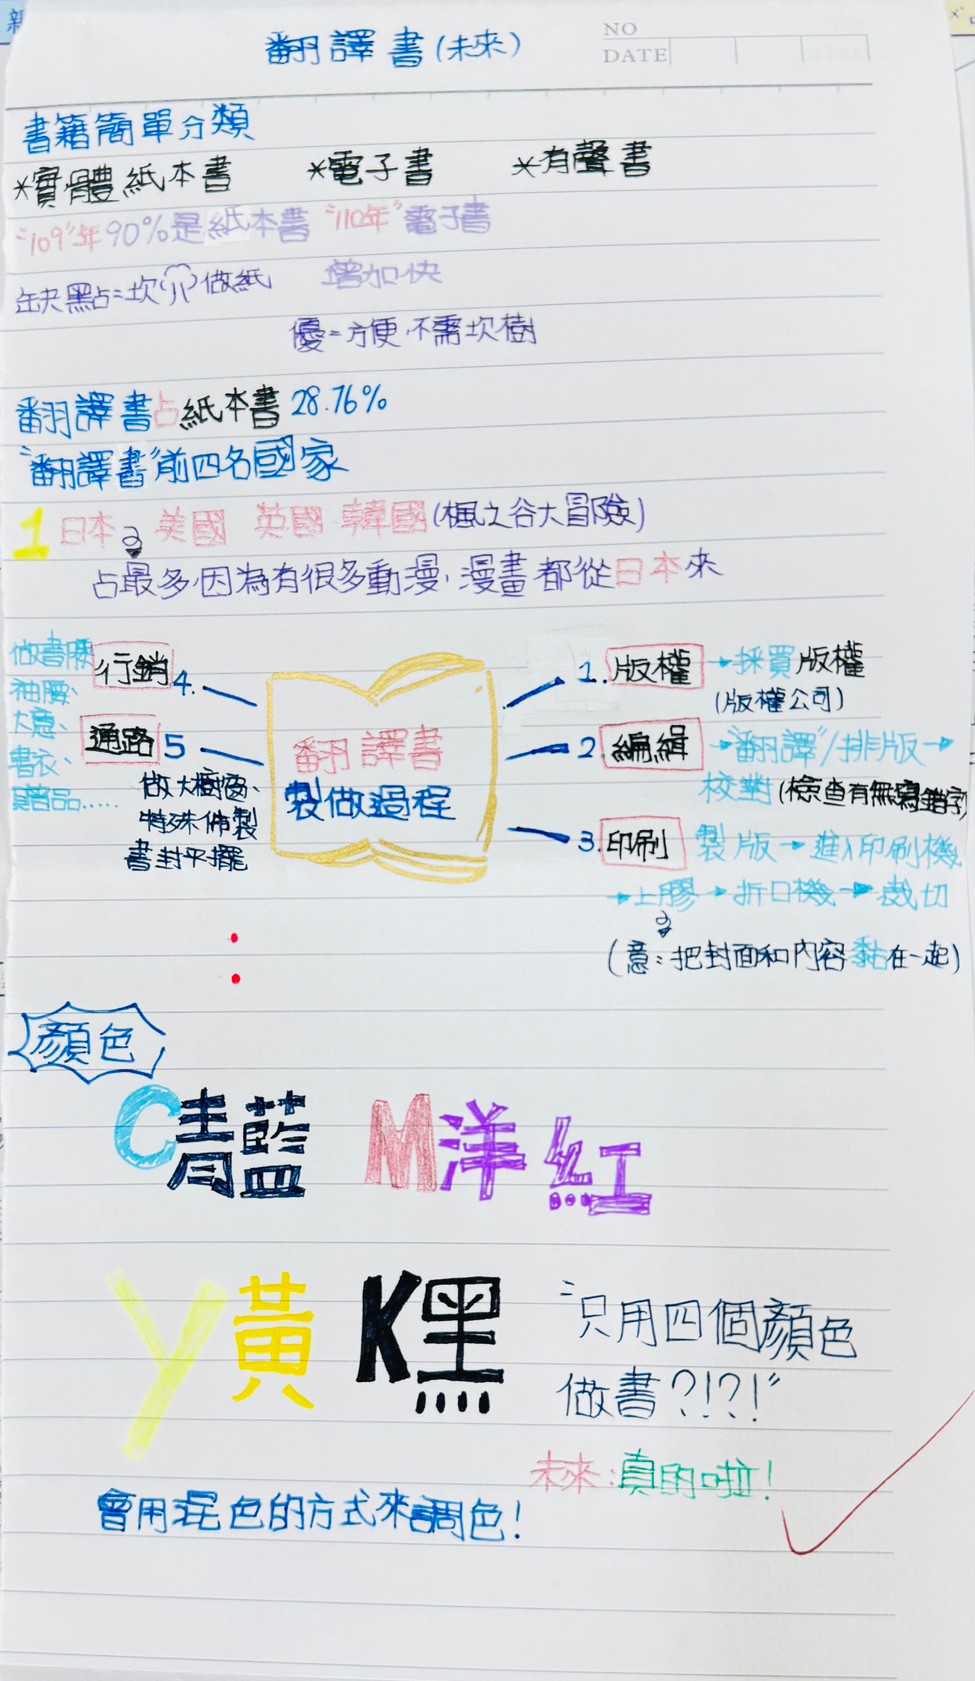 翻譯書(未來)
NO
DATE
書籍簡單分類
*實體紙本書 *電子書 *有聲書
"109"年90%是紙本書 "110年"電子書
增加快
缺點=坎 做紙
優=方便,不需坎樹
翻譯書占紙本書28.76%
"翻譯書"前四名國家
1 日本 美國 英國 韓國(楓之谷大冒險)
占最多,因為有很多動漫,漫畫都從日本來
翻譯書
製做過程
1. 版權 →採買版權
(版權公司)
2. 編緝 →"翻譯"/排版→
校對(檢查有無寫錯字)
3. 印刷 製版→進入印刷機
→上膠→折口機→裁切
(意:把封面和內容黏在一起)
行銷 4.
做書腰
大意、
書衣、
贈品.....
通路 5
做大櫥窗、
特殊佈製
書封平擺
顏色
C青藍 M洋紅
Y黃 K黑
"只用四個顏色
做書?!?!"
未來:真的啦!
會用混色的方式來調色!